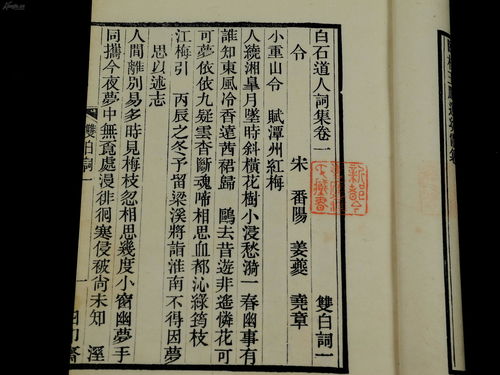 白石道人詞集卷一　雙白詞一
宋　番陽　姜夔　堯章
令
小重山令　賦潭州紅梅
人繞湘皐月墜時斜橫花樹小浸愁漪一春幽事有
誰知東風冷香遠茜裙歸　鷗去昔遊非遙憐花可
可夢依依九疑雲杳斷魂啼相思血都沁綠筠枝
江梅引　丙辰之冬予留梁溪將詣淮南不得因夢
思以述志
人間離別易多時見梅枝忽相思幾度小窗幽夢手
同攜今夜夢中無覓處漫徘徊寒侵被尙未知　溼
雙白詞
一